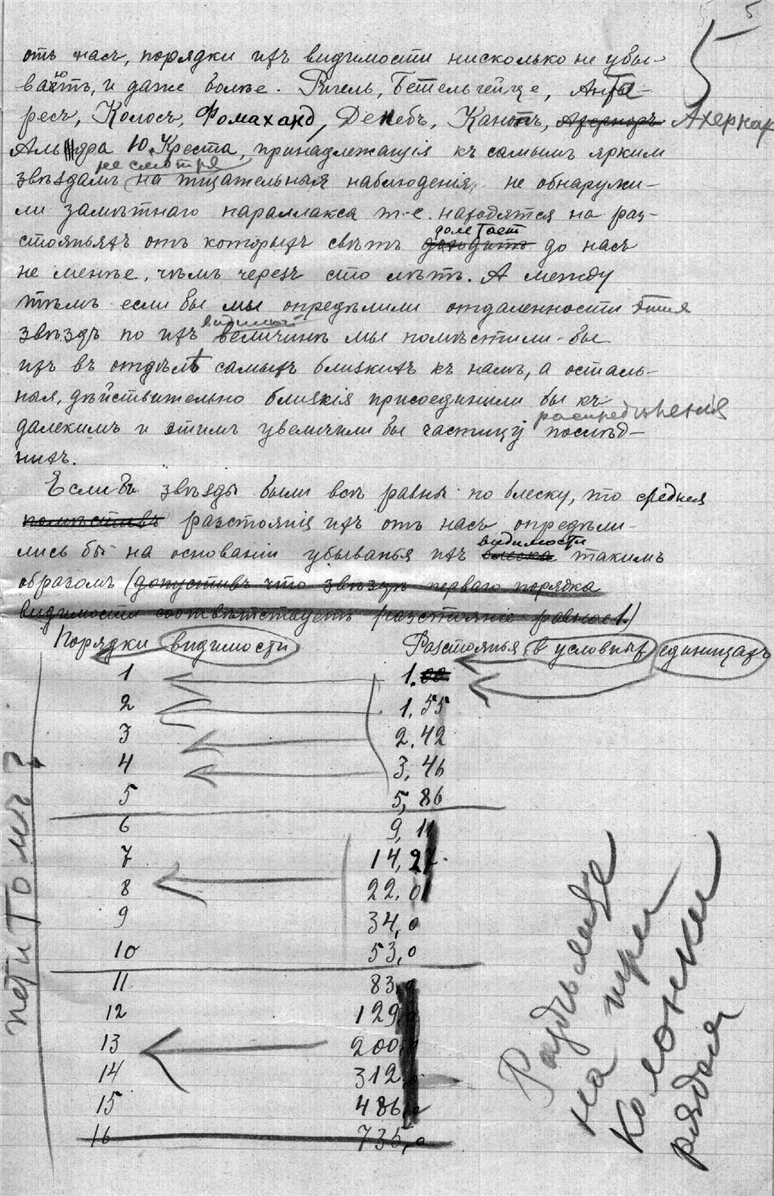 5
5
отъ насъ, порядки ихъ видимости нисколько не убы-
ваютъ, и даже болѣе. Ригель, Бетельгейце, Анта-
ресъ, Колосъ, Фомаханд, Денебъ, Канопъ, Ахернаръ Ахернар
Альфа Ю. Креста, принадлежащія къ самымъ яркимъ
не смотря
звѣздамъ на тщательныя наблюденія, не обнаружи-
ли замѣтнаго параллакса т.-е. находятся на раз-
долетает
стояньяхъ отъ которыхъ свѣтъ доходитъ до насъ
не менѣе, чѣмъ черезъ сто лѣтъ. А между
тѣмъ если бы мы опредѣлили отдаленности этихъ
видимой
звѣздъ по ихъ величинѣ мы помѣстили-бы
ихъ въ отдѣлѣ самыхъ близкихъ къ намъ, а осталь-
ныя, дѣйствительно близкія присоединили бы къ
распредѣленія
далекимъ и этимъ увеличили бы частицу послѣд-
нихъ.
Если бъ звѣзды были всѣ равны по блеску, то средняя
помѣстивъ разстоянія ихъ отъ насъ опредѣли-
видимости
лись бы на основаніи убыванья ихъ блеска такимъ
образомъ (допустивъ что звѣзды перваго порядка
видимости соотвѣтствуетъ разстоянію равное 1.)
Порядки видимости Разстоянья в условныхъ единицахъ
1 1.00
2 1,55
3 2,42
4 3,46
5 5,86
6 9,11
7 14,27
8 22,0
9 34,0
10 53,0
11 83,0
12 129,0
13 200,0
14 312,0
15 486,0
16 735,0
петитомъ?
Раздѣлите
на три
колонки
рядом